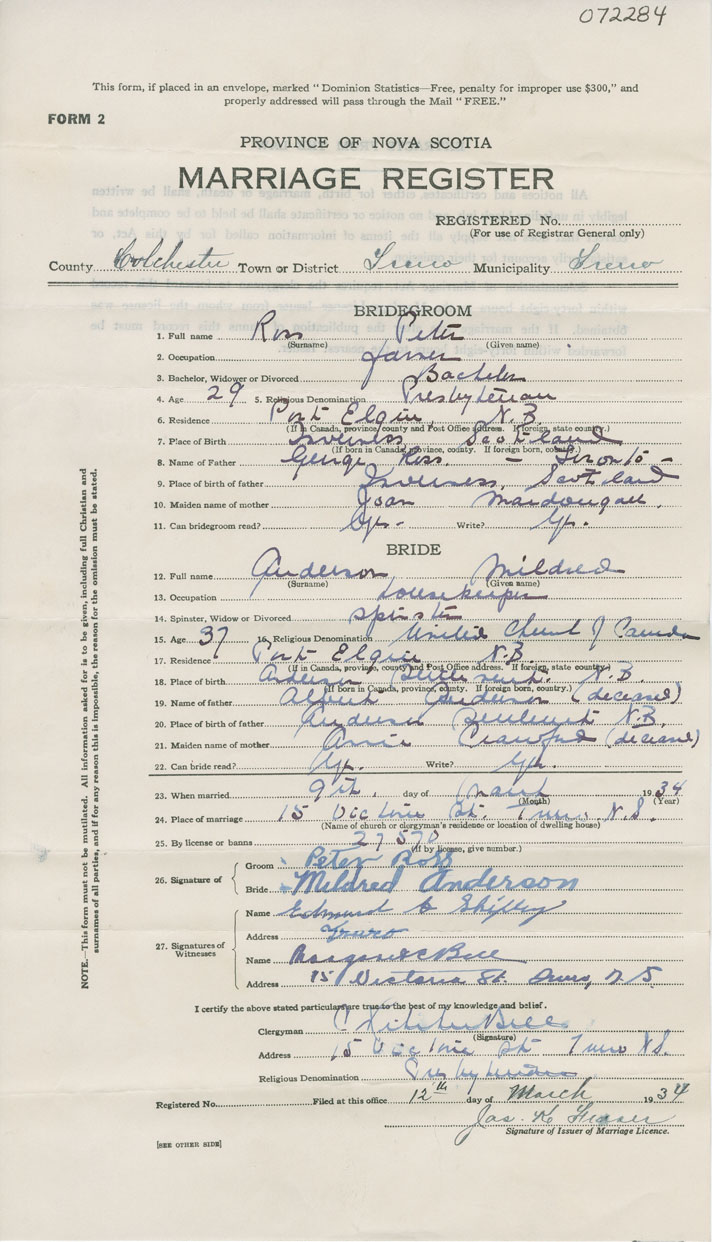 072284
This form, if placed in an envelope, marked "Dominion Statistics—Free, penalty for improper use $300," and
properly addressed will pass through the Mail "FREE."
FORM 2
PROVINCE OF NOVA SCOTIA
MARRIAGE REGISTER
REGISTERED No.
(For use of Registrar General only)
County Colchester Town or District Truro Municipality Truro
BRIDEGROOM
1. Full name Ross Peter
(Surname) (Given name)
2. Occupation Farmer
3. Bachelor, Widower or Divorced Bachelor
4. Age 29 5. Religious Denomination Presbyterian
6. Residence Port Elgin, N.B.
(If in Canada, province, county and Post Office address. If foreign, state county.)
7. Place of Birth Inverness Scotland
(If born in Canada, province, county. If foreign born, county.)
8. Name of Father George Ross. — Toronto —
9. Place of birth of father Inverness, Scotland
10. Maiden name of mother Joan Macdougall.
11. Can bridegroom read? Yes. Write? Yes.
BRIDE
12. Full name Anderson Mildred
(Surname) (Given name)
13. Occupation Housekeeper
14. Spinster, Widow or Divorced Spinster
15. Age 37 16. Religious Denomination United Church of Canada
17. Residence Port Elgin N.B.
(If in Canada, province, county and Post Office address. If foreign, state county.)
18. Place of birth Anderson Settlement. N.B.
(If born in Canada, province, county. If foreign born, country.)
19. Name of father Alfred Anderson (deceased)
20. Place of birth of father Anderson Settlement N.B.
21. Maiden name of mother Annie Crawford (deceased)
22. Can bride read? Yes. Write? Yes.
23. When married 9th. day of March 1934
(Month) (Year)
24. Place of marriage 15 Victoria St. Truro N.S.
(Name of church or clergyman's residence or location of dwelling house)
25. By license or banns 27570
(If by license, give number.)
26. Signature of Groom Peter Ross
Bride Mildred Anderson
27. Signatures of Witnesses
Name Edmund
Address Truro
Name Margaret C Bell
Address 15 Victoria St. Truro, N.S.
I certify the above stated particulars are true to the best of my knowledge and belief.
Clergyman Bell
(Signature)
Address 15 Victoria St Truro N.S.
Religious Denomination Presbyterian
Registered No. Filed at this office 12th day of March 1934
Jas. K. Fraser
Signature of Issuer of Marriage Licence.
[SEE OTHER SIDE]
NOTE.—This form must not be mutilated. All information asked for is to be given, including full Christian and
surnames of all parties, and if for any reason this is impossible, the reason for the omission must be stated.